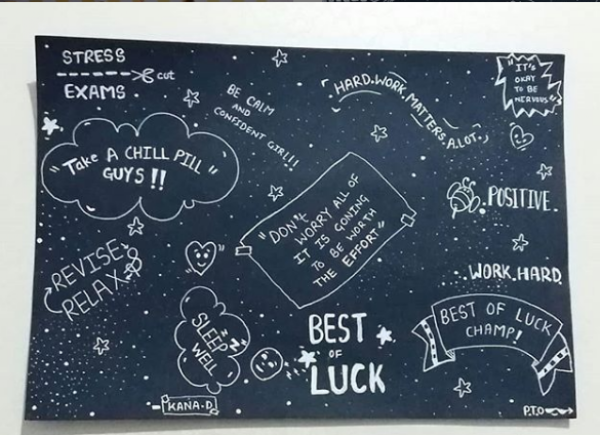 STRESS
cut
EXAMS.
BE CALM
AND
CONFIDENT GIRL!!!
HARD.WORK.MATTERS.A.LOT.
"IT'S
OKAY
TO BE
NERVOUS"
"Take A CHILL PILL"
GUYS!!
"DON'T
WORRY ALL OF
IT IS GONING
TO BE WORTH
THE EFFORT"
.POSITIVE.
REVISE
&
RELAX
..WORK.HARD
SLEEP
WELL
ZZZ
BEST
OF
LUCK
BEST OF LUCK
CHAMP!
-KANA.D
P.T.O